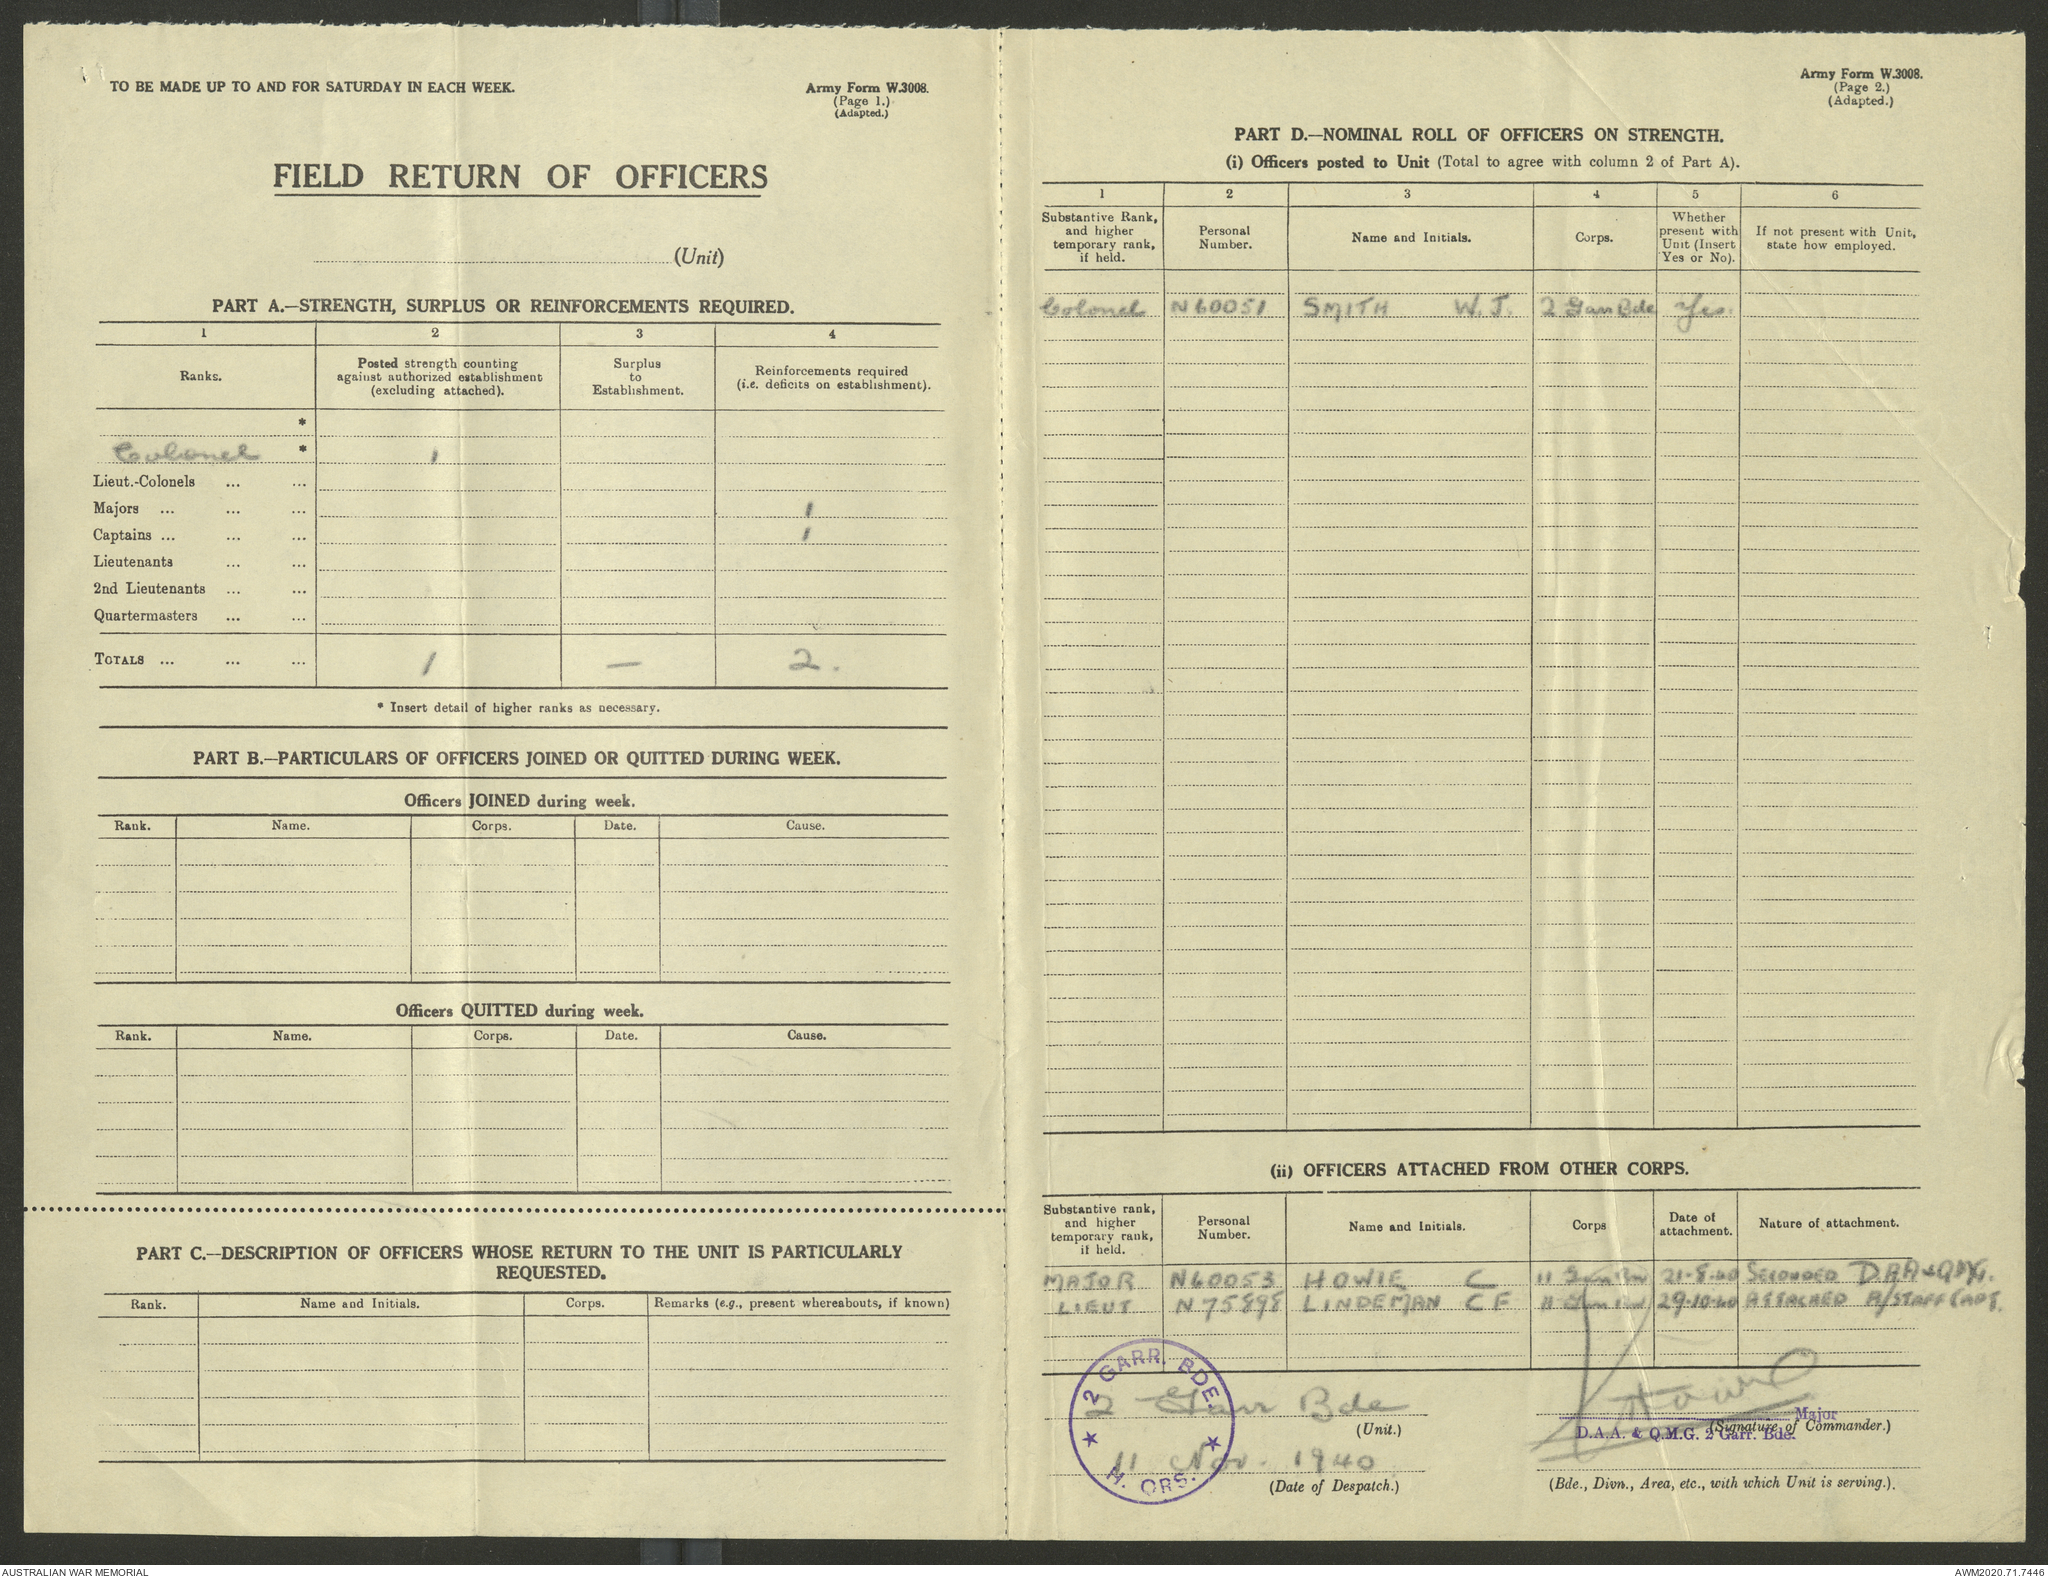 TO BE MADE UP TO AND FOR SATURDAY IN EACH WEEK.
Army Form W.3008.
(Page 1.)
(Adapted.)
FIELD RETURN OF OFFICERS
(Unit)
PART A.—STRENGTH, SURPLUS OR REINFORCEMENTS REQUIRED.
1 2 3 4
Ranks. Posted strength counting against authorized establishment (excluding attached). Surplus to Establishment. Reinforcements required (i.e. deficits on establishment).
*
Colonel * 1
Lieut.-Colonels ... ...
Majors ... ... ... 1
Captains ... ... ... 1
Lieutenants ... ...
2nd Lieutenants ... ...
Quartermasters ... ...
TOTALS ... ... ... 1 — 2.
* Insert detail of higher ranks as necessary.
PART B.—PARTICULARS OF OFFICERS JOINED OR QUITTED DURING WEEK.
Officers JOINED during week.
Rank. Name. Corps. Date. Cause.
Officers QUITTED during week.
Rank. Name. Corps. Date. Cause.
PART C.—DESCRIPTION OF OFFICERS WHOSE RETURN TO THE UNIT IS PARTICULARLY
REQUESTED.
Rank. Name and Initials. Corps. Remarks (e.g., present whereabouts, if known)
Army Form W.3008.
(Page 2.)
(Adapted.)
PART D.—NOMINAL ROLL OF OFFICERS ON STRENGTH.
(i) Officers posted to Unit (Total to agree with column 2 of Part A).
1 2 3 4 5 6
Substantive Rank, and higher temporary rank, if held. Personal Number. Name and Initials. Corps. Whether present with Unit (Insert Yes or No). If not present with Unit, state how employed.
Colonel N60051 SMITH W.J. 2 Garr Bde Yes.
(ii) OFFICERS ATTACHED FROM OTHER CORPS.
Substantive rank, and higher temporary rank, if held. Personal Number. Name and Initials. Corps Date of attachment. Nature of attachment.
MAJOR N60053 HOWIE C 11 Garr Bn 21-8-40 SECONDED DAA&QMG.
LIEUT N75898 LINDEMAN C F 11 Garr Bn 29-10-40 ATTACHED A/STAFF CAPT.
2 GARR. BDE.
H. QRS.
2 Garr Bde
(Unit.)
11 Nov. 1940
(Date of Despatch.)
Howie
Major
(Signature of Commander.)
D.A.A. & Q.M.G. 2 Garr. Bde.
(Bde., Divn., Area, etc., with which Unit is serving.).
AUSTRALIAN WAR MEMORIAL
AWM2020.71.7446